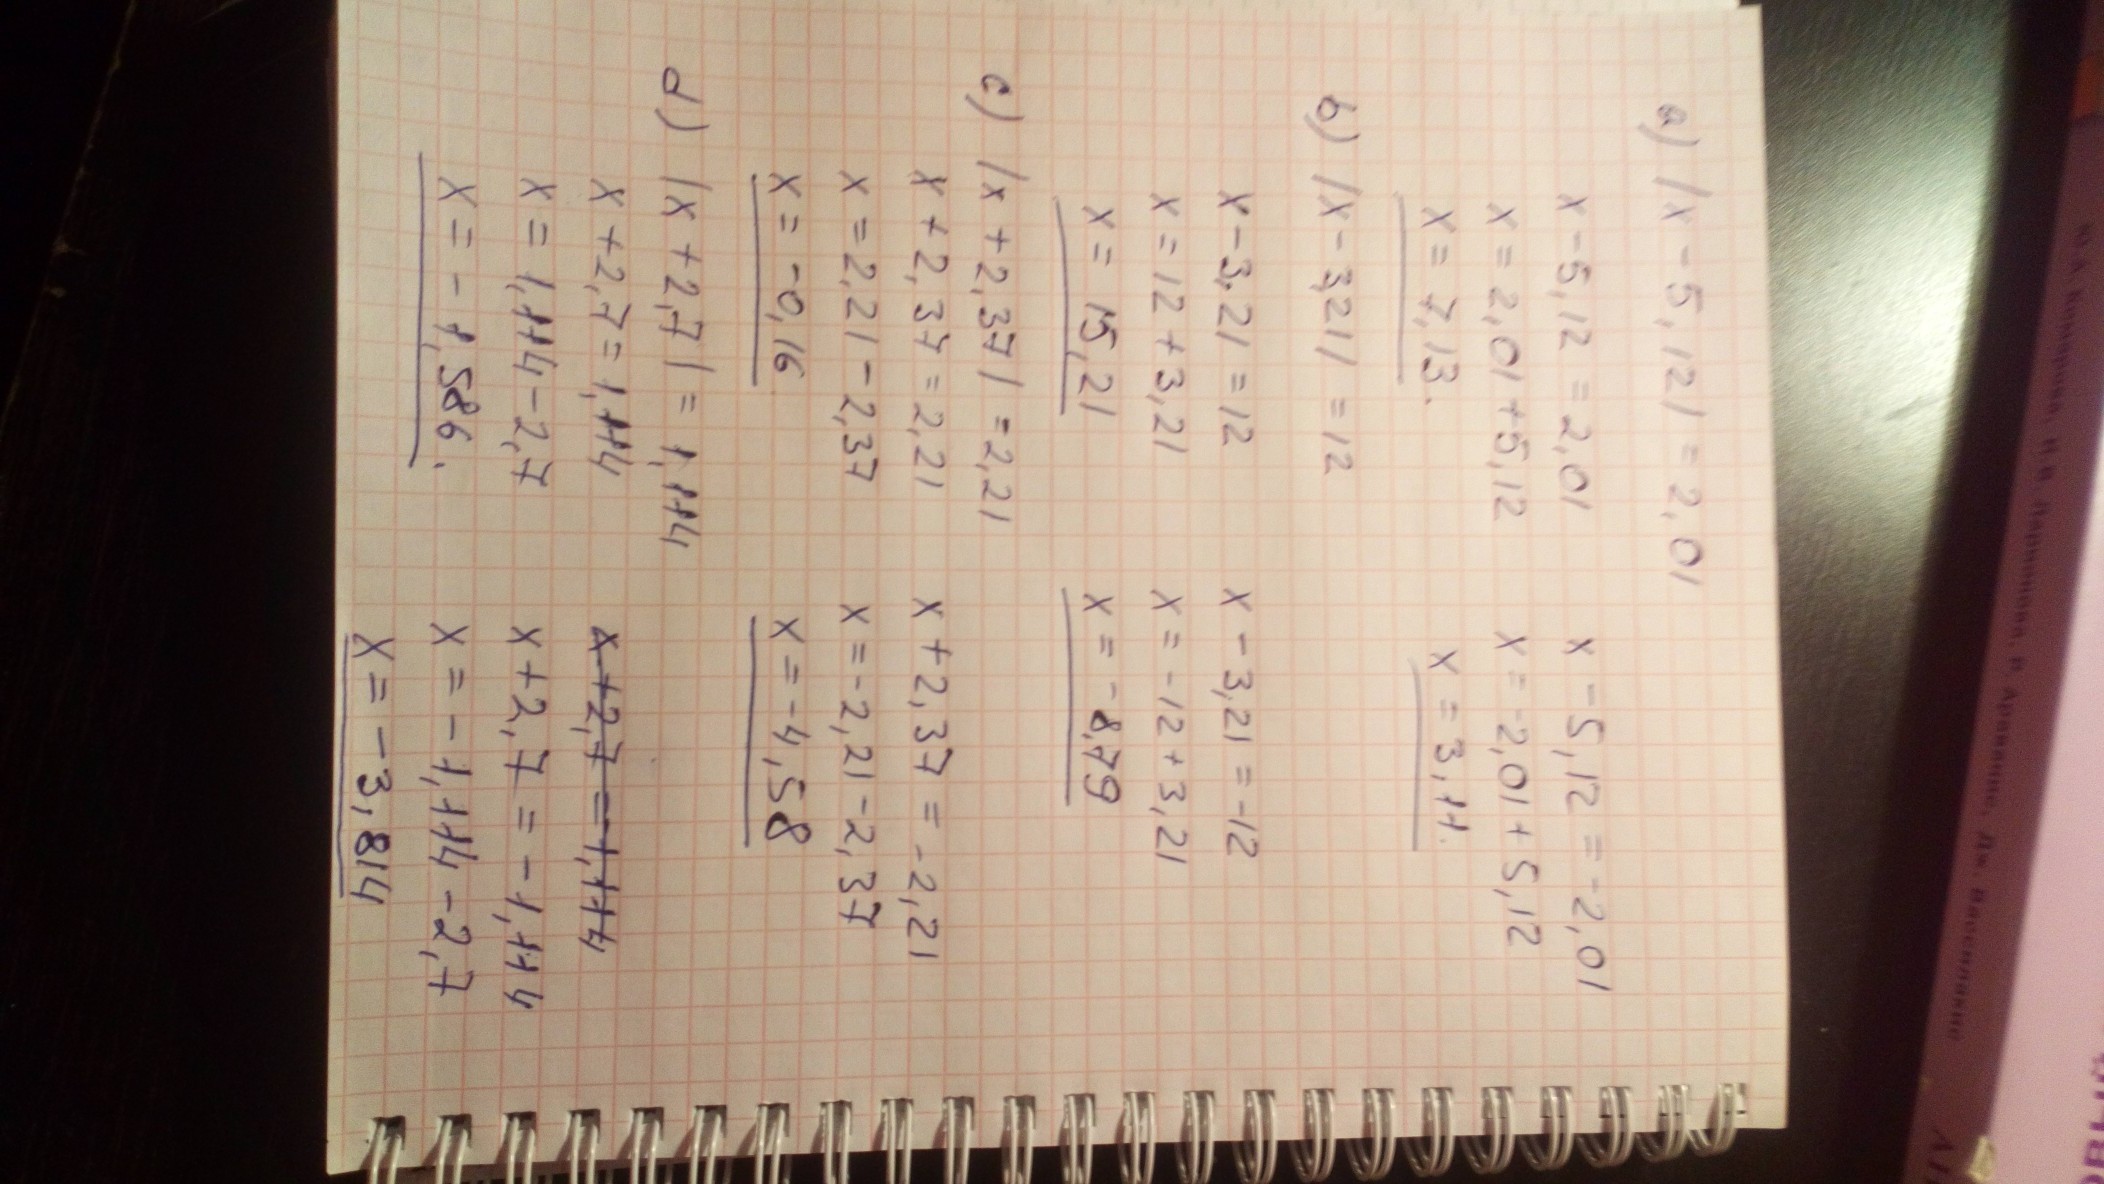 a) |x - 5,12| = 2,01
x - 5,12 = 2,01 x - 5,12 = -2,01
x = 2,01 + 5,12 x = -2,01 + 5,12
x = 7,13. x = 3,11.
b) |x - 3,21| = 12
x - 3,21 = 12 x - 3,21 = -12
x = 12 + 3,21 x = -12 + 3,21
x = 15,21 x = -8,79
c) |x + 2,37| = 2,21
x + 2,37 = 2,21 x + 2,37 = -2,21
x = 2,21 - 2,37 x = -2,21 - 2,37
x = -0,16 x = -4,58
d) |x + 2,7| = 1,114
x + 2,7 = 1,114 x + 2,7 = -1,114
x = 1,114 - 2,7 x + 2,7 = -1,114
x = -1,586. x = -1,114 - 2,7
x = -3,814